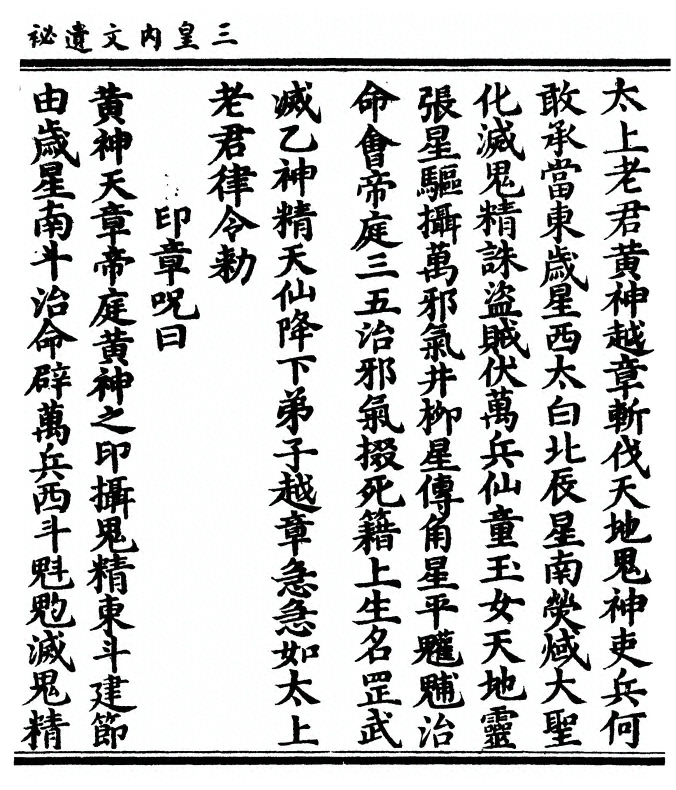 三皇內文遺祕
太上老君黃神越章斬伐天地鬼神吏兵何
敢承當東歲星西太白北辰星南熒惑大聖
化滅鬼精誅盜賊伏萬兵仙童玉女天地靈
張星驅攝萬邪氣井柳星傳角星平魓魒治
命會帝庭三五治邪氣掇死籍上生名罡武
滅乙神精天仙降下弟子越章急急如太上
老君律令勑
印章呪曰
黃神天章帝庭黃神之印攝鬼精東斗建節
由歲星南斗治命辟萬兵西斗魁魡滅鬼精